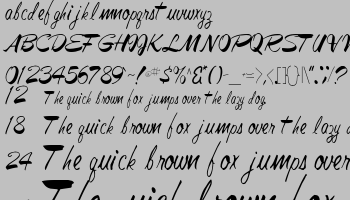 abcdefghijklmnopqrstuvwxyz
ABCDEFGHIJKLMNOPQRSTUVW
0123456789
12 The quick brown fox jumps over the lazy dog.
18 The quick brown fox jumps over the lazy
24 The quick brown fox jumps over
The quick brown fox